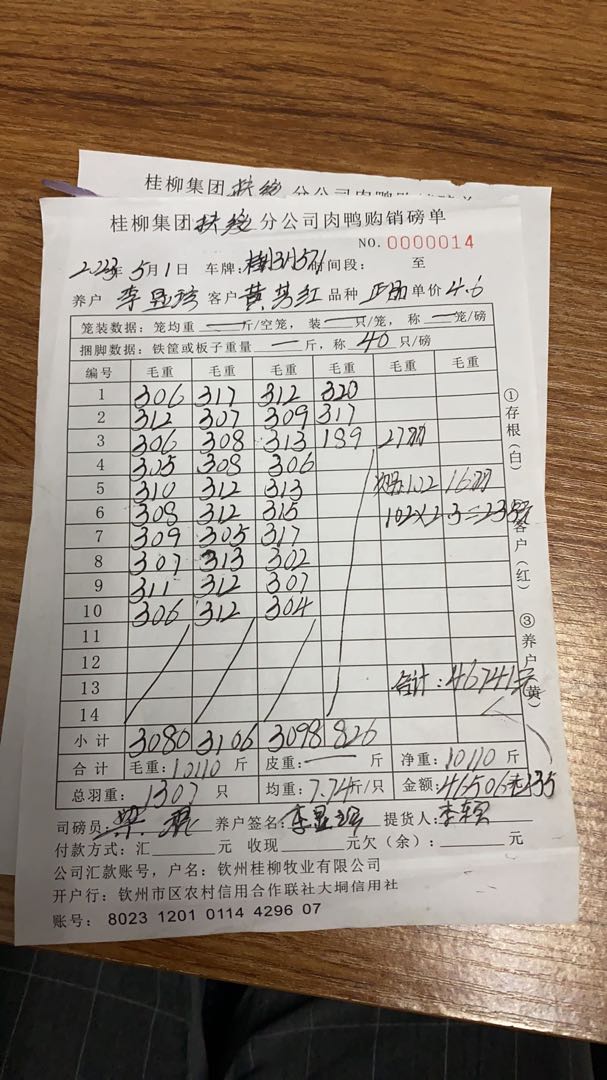 桂柳集团扶绥分公司肉鸭购销磅单
桂柳集团扶绥分公司肉鸭购销磅单
NO. 0000014
2023年5月1日 车牌: 时间段: 至
养户 客户 品种 正品 单价 4.6
笼装数据: 笼均重 — 斤/空笼, 装 — 只/笼, 称 — 笼/磅
捆脚数据: 铁筐或板子重量 — 斤, 称 40 只/磅
编号 毛重 毛重 毛重 毛重 毛重 毛重
1 306 317 312 320
2 312 307 309 317
3 306 308 313 189 27只
4 305 308 306
5 310 312 313 102 16只
6 308 312 315 102×2.3=235元
7 309 305 317
8 307 313 302
9 311 312 307
10 306 312 304
11
12
13 合计:46741元
14
小计 3080 3106 3098 826
合计 毛重: 10110 斤 皮重: — 斤 净重: 10110 斤
总羽重: 1307 只 均重: 7.74斤/只 金额: 46506+235
司磅员: 养户签名: 提货人:
付款方式: 汇 元 收现 元欠(余): 元
公司汇款账号, 户名: 钦州桂柳牧业有限公司
开户行: 钦州市区农村信用合作联社大垌信用社
账号: 8023 1201 0114 4296 07
①存根(白)
客户(红)
③养户(黄)